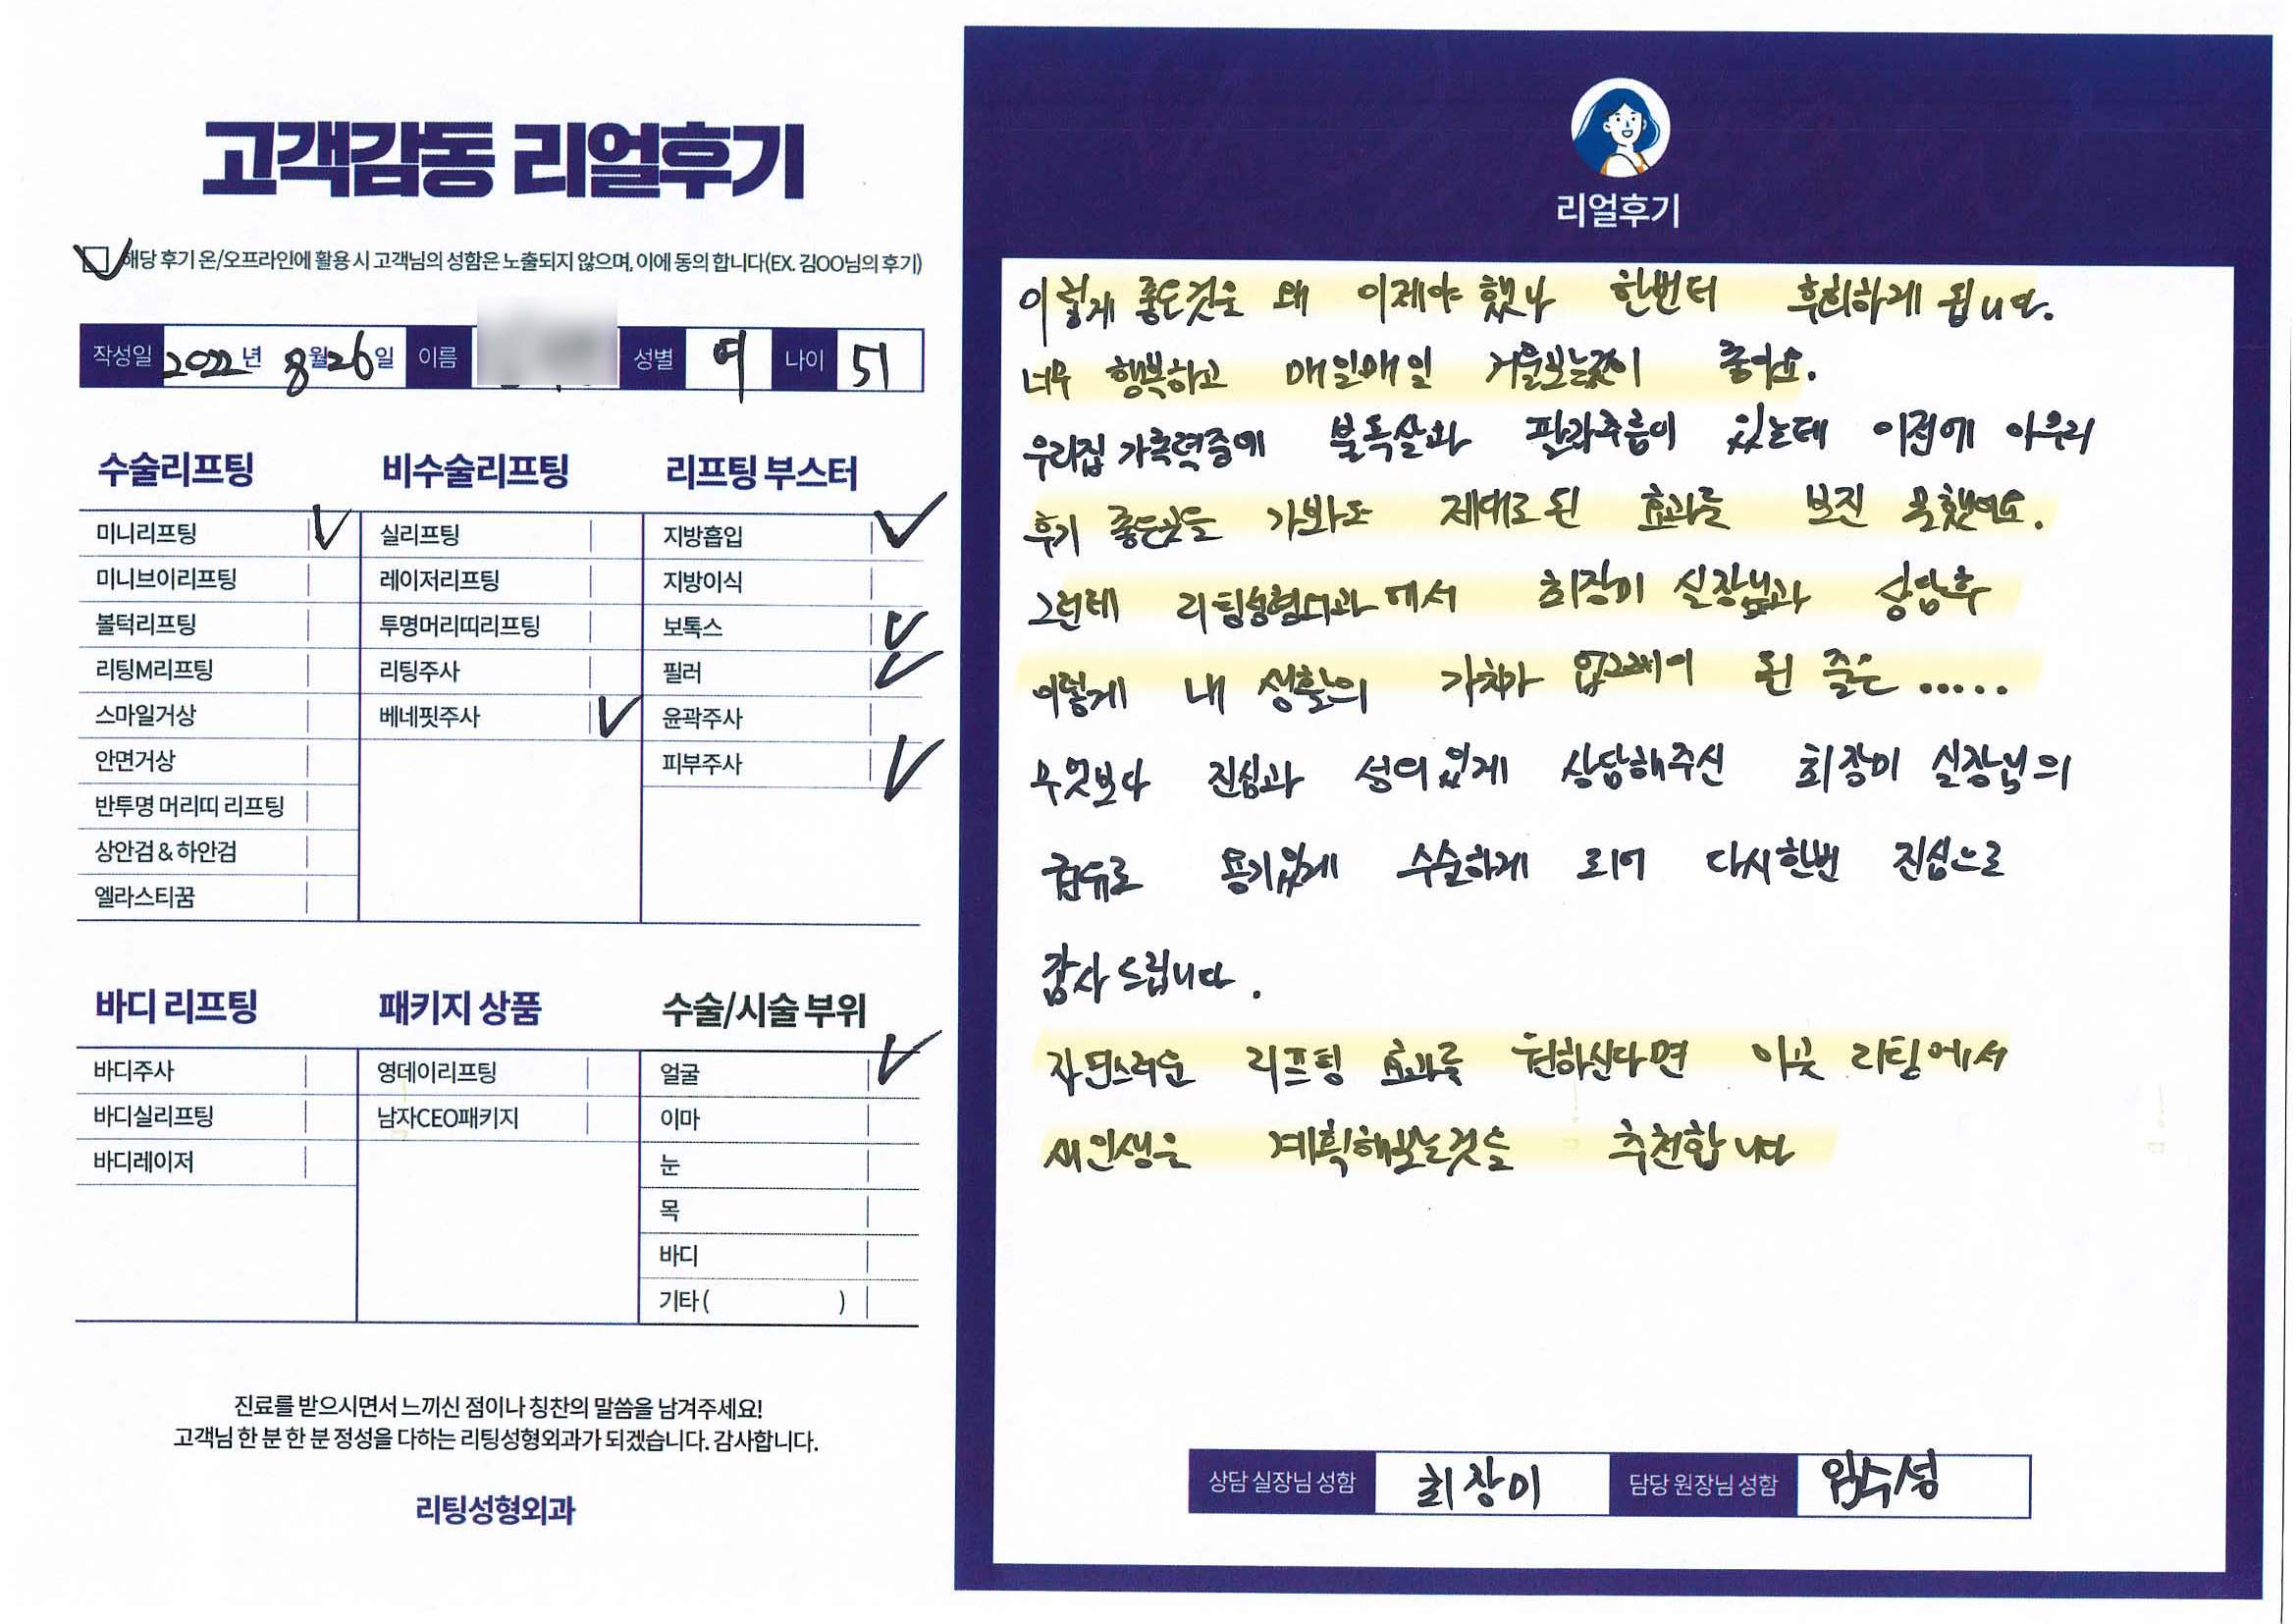 고객감동 리얼후기
해당 후기 온/오프라인에 활용 시 고객님의 성함은 노출되지 않으며, 이에 동의 합니다(EX. 김OO님의 후기)
작성일 2022년 8월 26일 이름 성별 여 나이 51
수술리프팅 비수술리프팅 리프팅 부스터
미니리프팅 실리프팅 지방흡입
미니브이리프팅 레이저리프팅 지방이식
볼턱리프팅 투명머리띠리프팅 보톡스
리팅M리프팅 리팅주사 필러
스마일거상 베네핏주사 윤곽주사
안면거상 피부주사
반투명 머리띠 리프팅
상안검 & 하안검
엘라스티꿈
바디 리프팅 패키지 상품 수술/시술 부위
바디주사 영데이리프팅 얼굴
바디실리프팅 남자CEO패키지 이마
바디레이저 눈
목
바디
기타 ( )
진료를 받으시면서 느끼신 점이나 칭찬의 말씀을 남겨주세요!
고객님 한 분 한 분 정성을 다하는 리팅성형외과가 되겠습니다. 감사합니다.
리팅성형외과
리얼후기
이렇게 좋은것을 왜 이제야 했나 한번더 후회하게 됩니다.
너무 행복하고 매일매일 거울보는것이 좋아요.
우리집 가족력중에 불독살과 팔자주름이 있는데 이전에 아무리
후기 좋은곳을 가봐도 제대로된 효과를 보진 못했어요.
그런데 리팅성형외과에서 최장미 실장님과 상담후
이렇게 내 생활의 가치가 업그레이 된 줄은 .....
무엇보다 진심과 성의있게 상담해주신 최장미 실장님의
용기있게 수술하게 되어 다시한번 진심으로
감사 드립니다.
자연스러운 리프팅 효과를 원하신다면 이곳 리팅에서
새인생을 계획해보는것을 추천합니다
상담 실장님 성함 최장미 담당 원장님 성함 임수성